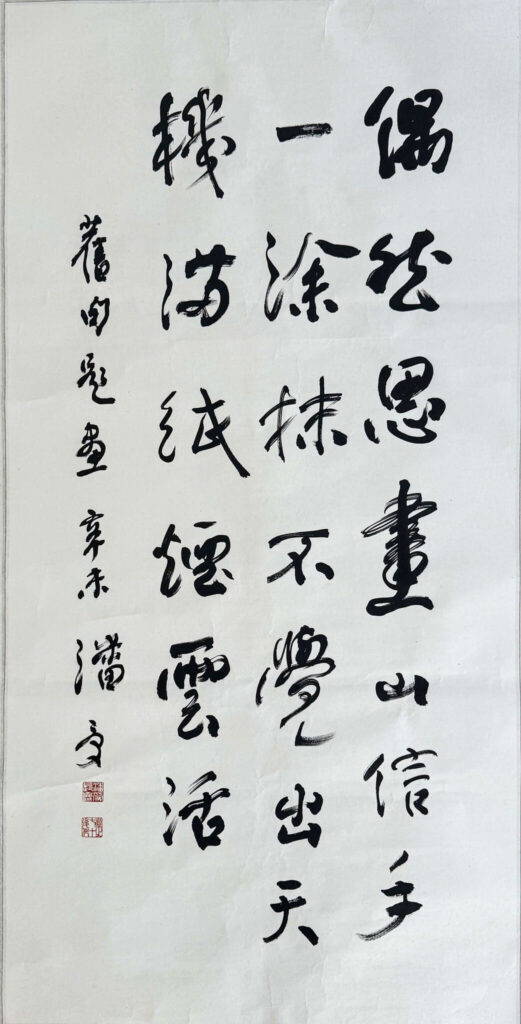 偶然思畫山信手
一塗抹不覺出天
機滿紙煙雲活
舊句題畫 辛未 潘受